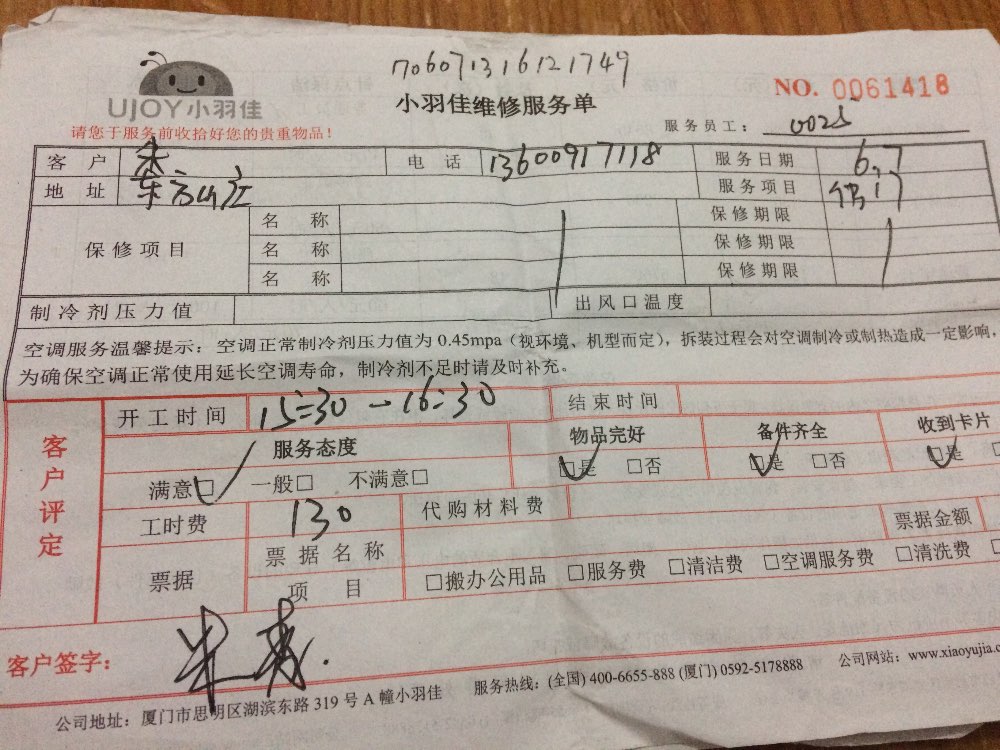 170607131612 1749
UJOY小羽佳
小羽佳维修服务单
NO. 0061418
请您于服务前收拾好您的贵重物品！
服务员工：
客户 朱 电话 13600917118 服务日期 6.7
地址 东方山庄 服务项目
保修项目 名称 保修期限
名称 保修期限
名称 保修期限
制冷剂压力值 出风口温度
空调服务温馨提示：空调正常制冷剂压力值为 0.45mpa（视环境、机型而定），拆装过程会对空调制冷或制热造成一定影响，
为确保空调正常使用延长空调寿命，制冷剂不足时请及时补充。
客户评定
开工时间 15:30-16:30 结束时间
服务态度 物品完好 备件齐全 收到卡片
满意□ 一般□ 不满意□ □是 □否 □是 □否 □是
工时费 130 代购材料费
票据 票据名称 票据金额
项目 □搬办公用品 □服务费 □清洁费 □空调服务费 □清洗费
客户签字：
公司地址：厦门市思明区湖滨东路 319 号 A 幢小羽佳 服务热线：(全国) 400-6655-888 (厦门) 0592-5178888 公司网站：www.xiaoyujia.c